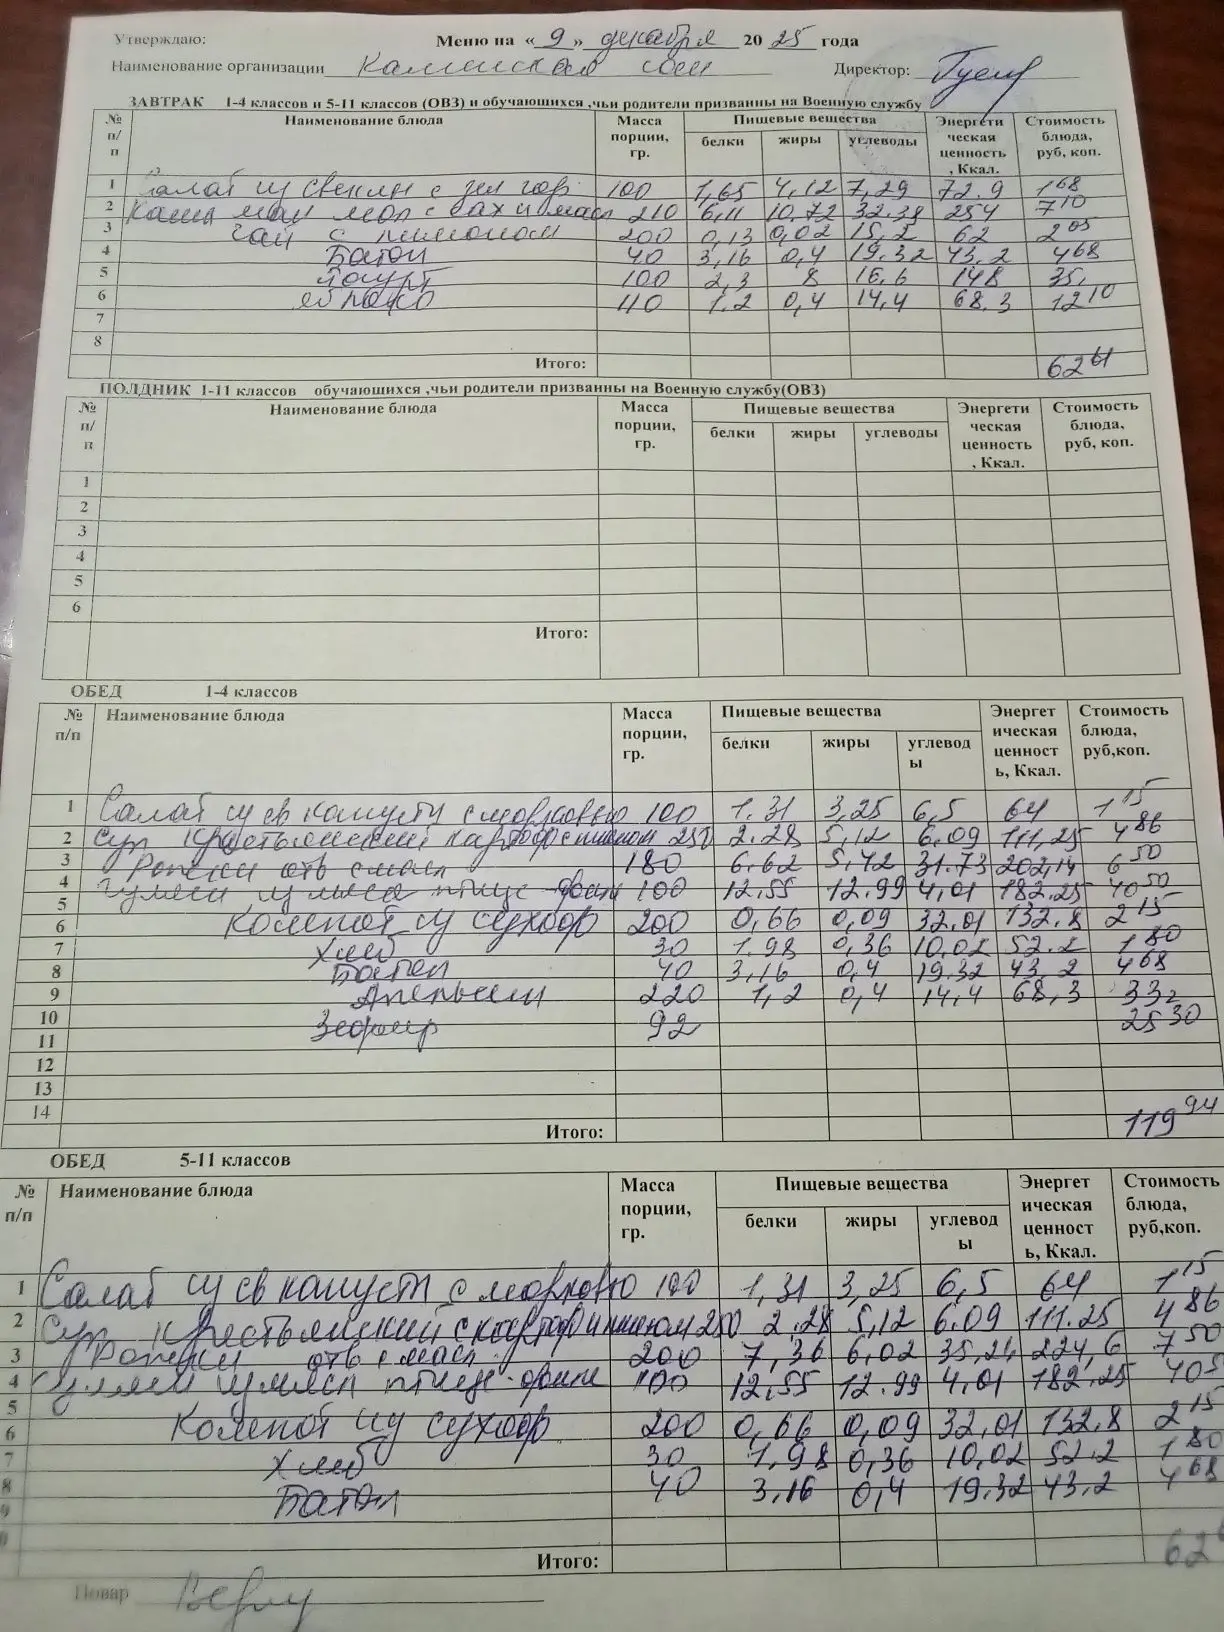 Утверждаю: Меню на «9» декабря 2025 года
Наименование организации Каминская сош Директор:
ЗАВТРАК 1-4 классов и 5-11 классов (ОВЗ) и обучающихся ,чьи родители призванны на Военную службу
№ п/п Наименование блюда Масса порции, гр. Пищевые вещества Энергетическая ценность, Ккал. Стоимость блюда, руб, коп.
белки жиры углеводы
1 Салат из свеклы с зел гор 100 1,65 4,12 7,29 72.9 1 68
2 Каша ман мол с сах и масл 210 6,11 10,72 32.38 254 7 10
3 Чай с лимоном 200 0,13 0,02 15,2 62 2 05
4 Батон 40 3,16 0,4 19.32 43.2 4 68
5 Йогурт 100 2,3 8 16,6 148 35,
6 яблоко 110 1.2 0,4 14,4 68.3 12 10
7
8
Итого: 62 61
ПОЛДНИК 1-11 классов обучающихся ,чьи родители призванны на Военную службу(ОВЗ)
№ п/п Наименование блюда Масса порции, гр. Пищевые вещества Энергетическая ценность, Ккал. Стоимость блюда, руб, коп.
белки жиры углеводы
1
2
3
4
5
6
Итого:
ОБЕД 1-4 классов
№ п/п Наименование блюда Масса порции, гр. Пищевые вещества Энергетическая ценность, Ккал. Стоимость блюда, руб,коп.
белки жиры углеводы
1 Салат из св капусты с морковью 100 1.31 3,25 6,5 64 1 15
2 Суп крестьянский картоф с пшеном 250 2.28 5,12 6.09 111,25 4 86
3 Рожки отв с масл 180 6.62 5,42 31.73 202,14 6 50
4 Гуляш из мяса птицы филе 100 12.55 12.99 4,01 182.25 40 50
5
6 Компот из сухофр 200 0,66 0,09 32,01 132.8 2 15
7 Хлеб 30 1.98 0,36 10,02 52.2 1 80
8 Батон 40 3,16 0,4 19.32 43,2 4 68
9 Апельсин 220 1,2 0,4 14,4 68,3 33,
10 Зефир 92 25 30
11
12
13
14
Итого: 119 94
ОБЕД 5-11 классов
№ п/п Наименование блюда Масса порции, гр. Пищевые вещества Энергетическая ценность, Ккал. Стоимость блюда, руб,коп.
белки жиры углеводы
1 Салат из св капусты с морковью 100 1,31 3,25 6,5 64 1 15
2 Суп крестьянский с картоф и пшеном 250 2.28 5,12 6.09 111.25 4 86
3 Рожки отв с масл. 200 7,36 6,02 35,24 224,6 7 50
4 Гуляш из мяса птицы филе 100 12,55 12.99 4,01 182.25 40 5
5
6 Компот из сухофр 200 0,66 0,09 32.01 132.8 2 15
7 Хлеб 30 1,98 0,36 10,02 52.2 1 80
8 Батон 40 3,16 0,4 19.32 43,2 4 68
9
Итого: 62
Повар